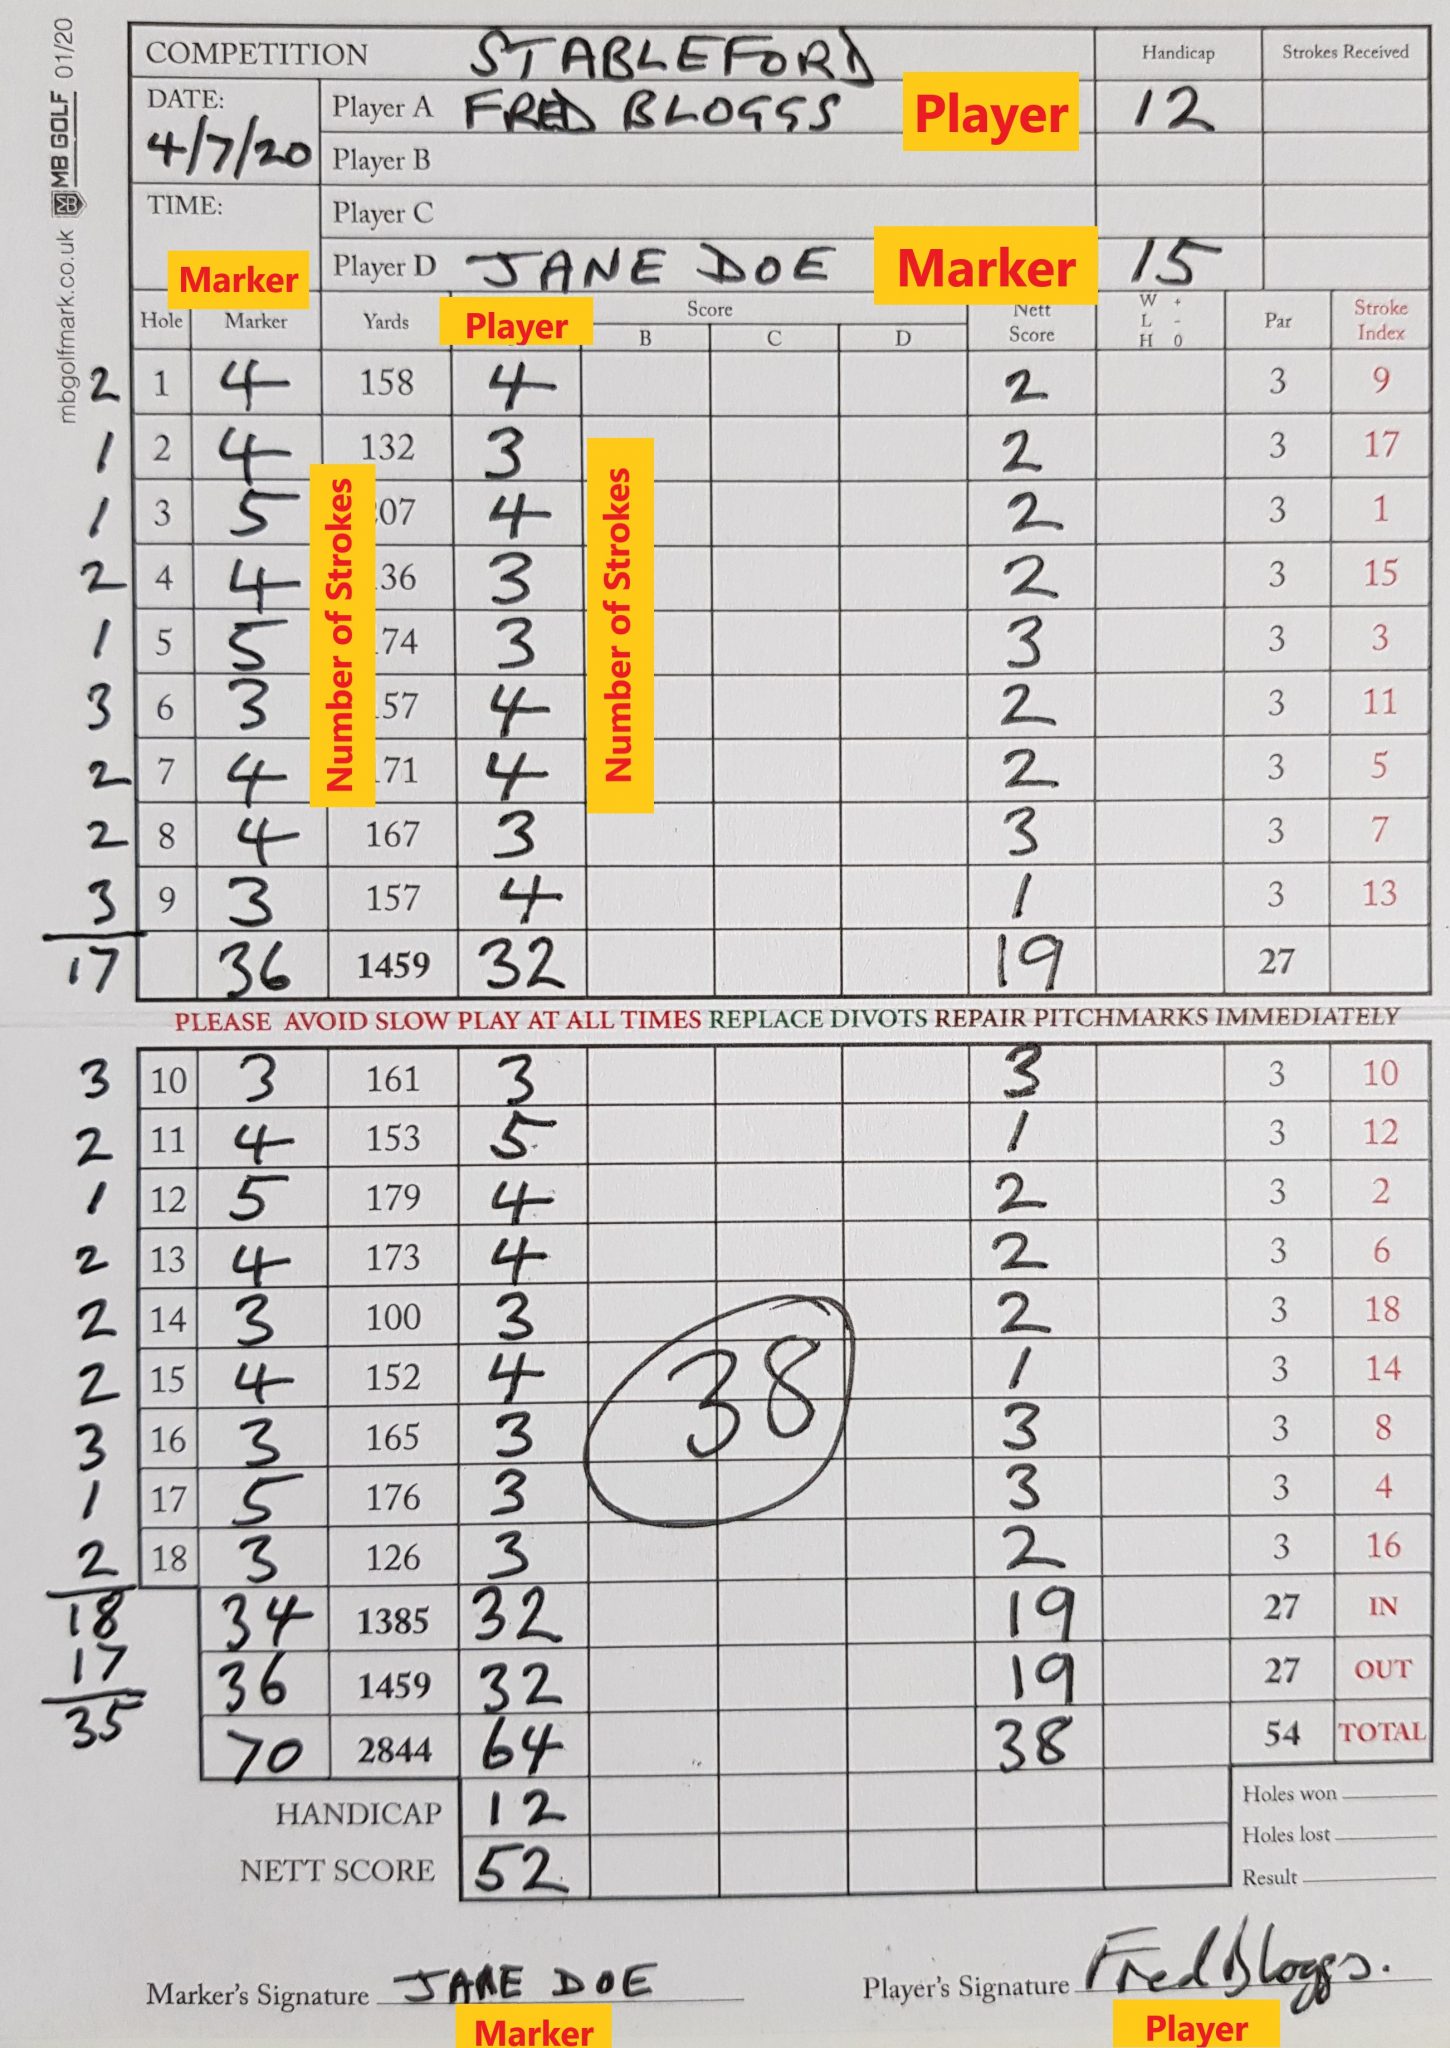 mbgolfmark.co.uk MB GOLF 01/20
COMPETITION STABLEFORD Handicap Strokes Received
DATE: Player A FRED BLOGGS Player 12
4/7/20 Player B
TIME: Player C
Marker Player D JANE DOE Marker 15
Hole Marker Yards Player Score Nett Score W + L - H 0 Par Stroke Index
B C D
2 1 4 158 4 2 3 9
1 2 4 132 3 2 3 17
1 3 5 07 4 2 3 1
2 4 4 36 3 2 3 15
1 5 5 74 3 3 3 3
3 6 3 57 4 2 3 11
2 7 4 171 4 2 3 5
2 8 4 167 3 3 3 7
3 9 3 157 4 1 3 13
17 36 1459 32 19 27
Number of Strokes
Number of Strokes
PLEASE AVOID SLOW PLAY AT ALL TIMES REPLACE DIVOTS REPAIR PITCHMARKS IMMEDIATELY
3 10 3 161 3 3 3 10
2 11 4 153 5 1 3 12
1 12 5 179 4 2 3 2
2 13 4 173 4 2 3 6
2 14 3 100 3 2 3 18
2 15 4 152 4 1 3 14
3 16 3 165 3 3 3 8
1 17 5 176 3 3 3 4
2 18 3 126 3 2 3 16
38
18 34 1385 32 19 27 IN
17 36 1459 32 19 27 OUT
35 70 2844 64 38 54 TOTAL
HANDICAP 12 Holes won
Holes lost
NETT SCORE 52 Result
Marker's Signature JANE DOE Player's Signature Fred Bloggs.
Marker Player